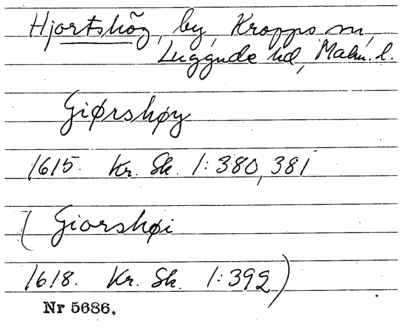 Hjortshög, by, Kropps sn,
Luggude hd, Malm. l.
Giørshøy
1615. Kr. Sk. 1:380, 381
( Giorshøi
1618. Kr. Sk. 1:392)
Nr 5686.